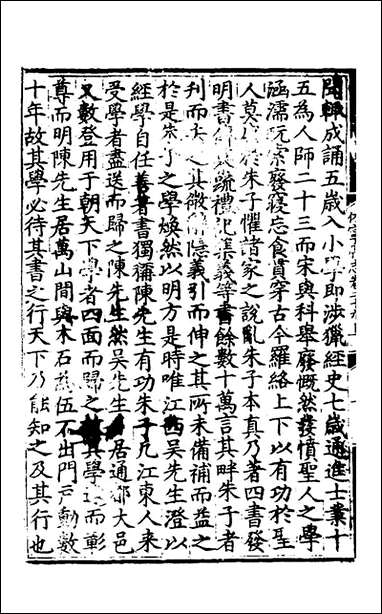 聞輒成誦五歲入小學即涉獵經史七歲通進士業十
五為人師二十三而宋與科舉廢慨然發憤聖人之學
涵濡玩索廢寢忘食貫穿古今羅絡上下以有功於聖
人莫於朱子懼諸家之說亂朱子本真乃著四書發
明書疏禮集義等書餘數十萬言其畔朱子者
刋而去之其微辭隱義引而伸之其所未備補而益之
於是朱子之學煥然以明方是時唯江西吳先生澄以
經學自任善著書獨稱陳先生有功朱子凡江東人來
受學者盡送而歸之陳先生然吳先生居通都大邑
又數登用于朝天下學者四面而歸之其學遠而彰
尊而明陳先生居萬山間與木石俱伍不出門戶動數
十年故其學必待其書之行天下乃能知之及其行也